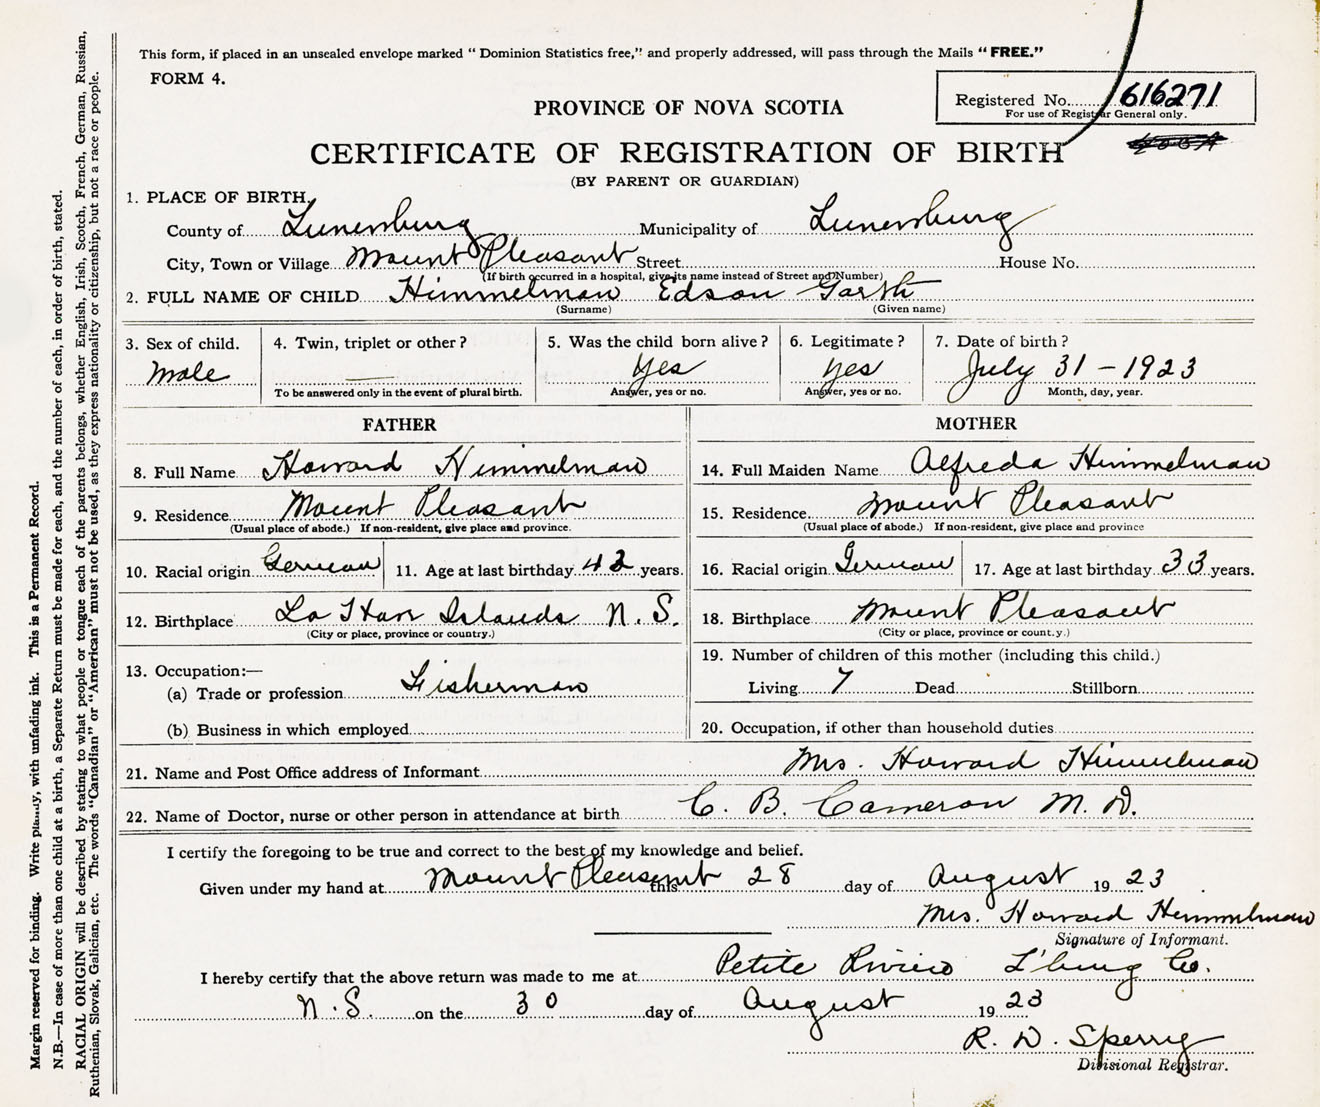 This form, if placed in an unsealed envelope marked “ Dominion Statistics free,” and properly addressed, will pass through the Mails “ FREE.”
FORM 4.
Registered No. 616271
For use of Registrar General only.
PROVINCE OF NOVA SCOTIA
CERTIFICATE OF REGISTRATION OF BIRTH
(BY PARENT OR GUARDIAN)
1. PLACE OF BIRTH,
County of Lunenburg Municipality of Lunenburg
City, Town or Village Mount Pleasant Street House No.
(If birth occurred in a hospital, give its name instead of Street and Number)
2. FULL NAME OF CHILD Himmelman Edson Garth
(Surname) (Given name)
3. Sex of child. 4. Twin, triplet or other ? 5. Was the child born alive ? 6. Legitimate ? 7. Date of birth ?
Male — Yes Yes July 31 - 1923
To be answered only in the event of plural birth. Answer, yes or no. Answer, yes or no. Month, day, year.
FATHER MOTHER
8. Full Name Howard Himmelman 14. Full Maiden Name Alfreda Himmelman
9. Residence Mount Pleasant 15. Residence Mount Pleasant
(Usual place of abode.) If non-resident, give place and province. (Usual place of abode.) If non-resident, give place and province
10. Racial origin German 11. Age at last birthday 42 years. 16. Racial origin German 17. Age at last birthday 33 years.
12. Birthplace La Have Islands N. S. 18. Birthplace Mount Pleasant
(City or place, province or country.) (City or place, province or count.y.)
13. Occupation:— 19. Number of children of this mother (including this child.)
(a) Trade or profession Fisherman Living 7 Dead Stillborn
(b) Business in which employed 20. Occupation, if other than household duties
21. Name and Post Office address of Informant Mrs. Howard Himmelman
22. Name of Doctor, nurse or other person in attendance at birth C. B. Cameron M. D.
I certify the foregoing to be true and correct to the best of my knowledge and belief.
Given under my hand at Mount Pleasant this 28 day of August 19 23
Mrs. Howard Himmelman
Signature of Informant.
I hereby certify that the above return was made to me at Petite Riviere L'burg Co.
N. S. on the 30 day of August 19 23
R. D. Sperry
Divisional Registrar.
Margin reserved for binding. Write plainly, with unfading ink. This is a Permanent Record.
N.B.—In case of more than one child at a birth, a Separate Return must be made for each, and the number of each, in order of birth, stated.
RACIAL ORIGIN will be described by stating to what people or tongue each of the parents belongs, whether English, Irish, Scotch, French, German, Russian,
Ruthenian, Slovak, Galician, etc. The words “Canadian” or “American” must not be used, as they express nationality or citizenship, but not a race or people.